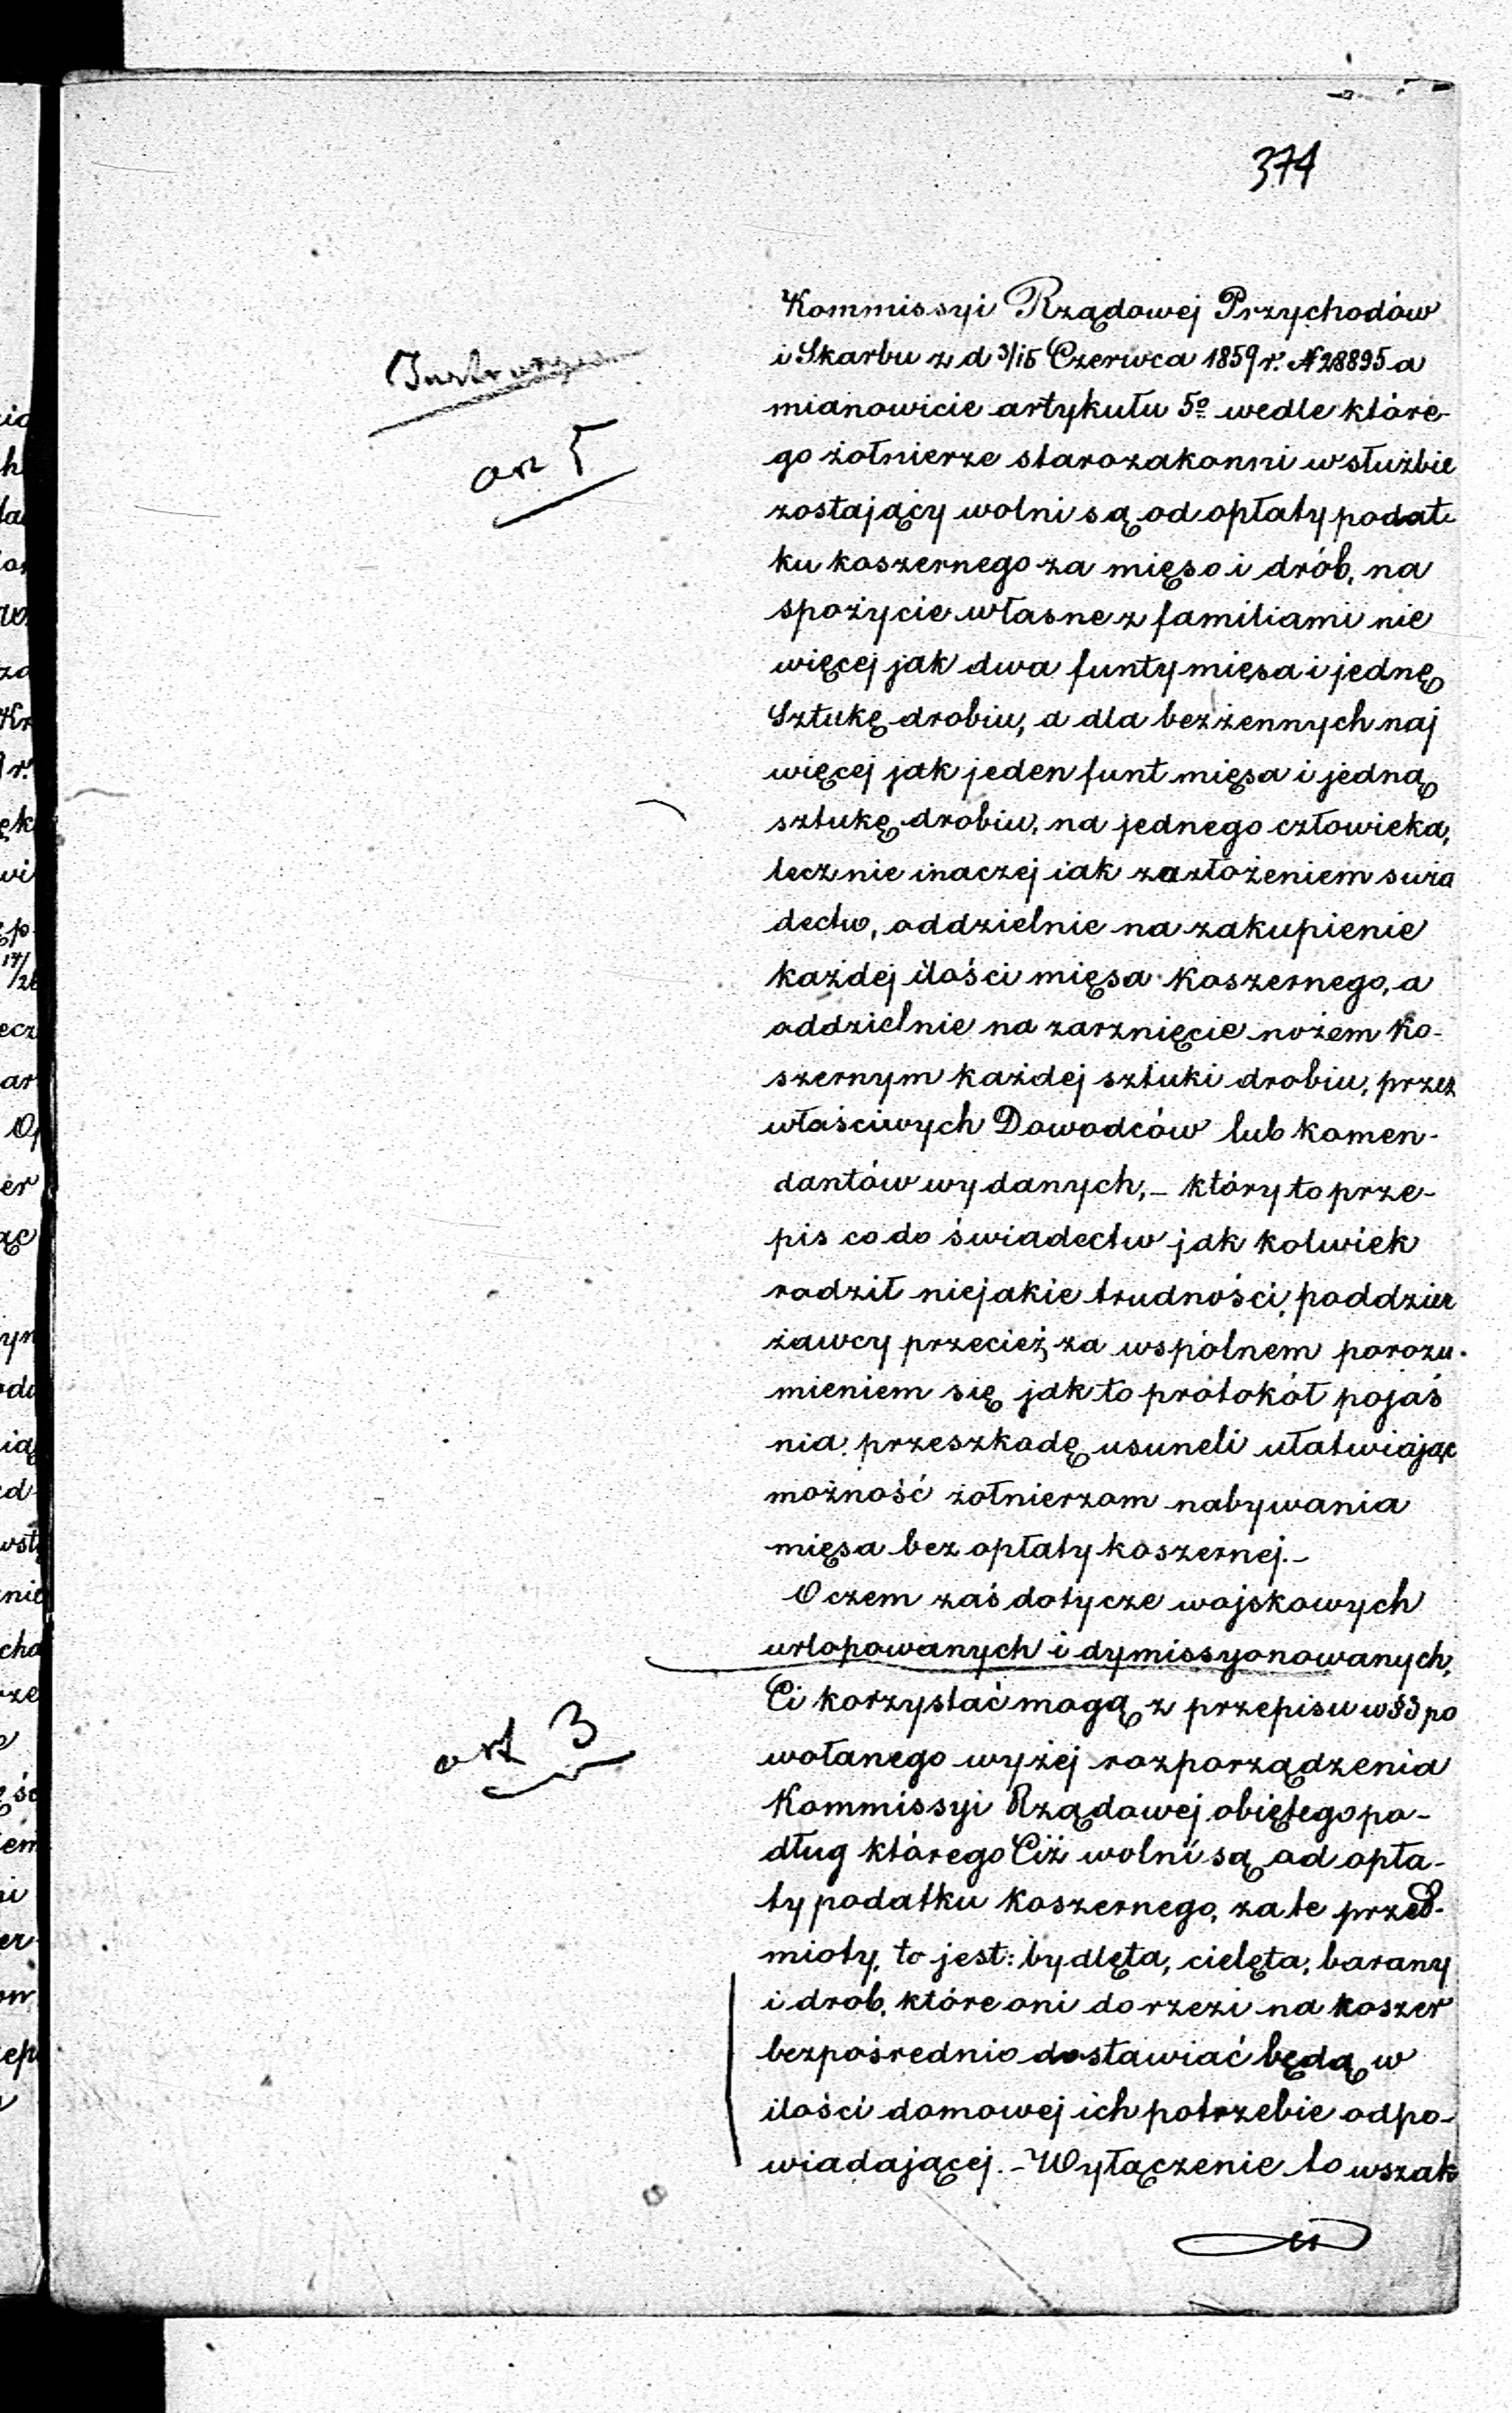 374
Kommissyi Rządowej Przychodów
i Skarbu z d 3/15 Czerwca 1859 r. N 28895 a
mianowicie artykułu 5º wedle które-
go żołnierze starozakonni w służbie
zostający wolni są od opłaty podat-
ku koszernego za mięso i drób, na
spożycie własne z familiami nie
więcej jak dwa funty mięsa i jednę
Sztukę drobiu, a dla bezżennych naj
więcej jak jeden funt mięsa i jedną
sztukę drobiu, na jednego człowieka,
lecz nie inaczej iak za złożeniem swia
dectw, oddzielnie na zakupienie
każdej ilości mięsa koszernego, a
oddzielnie na zarznięcie nożem ko-
szernym każdej sztuki drobiu, przez
właściwych Dowodców lub komen-
dantów wydanych, – który to prze-
pis co do świadectw jak kolwiek
rodził niejakie trudności, poddzier
żawcy przecież, za wspólnem porozu-
mieniem się jak to protokół pojaś
nia, przeszkodę usuneli ułatwiając
możność żołnierzom nabywania
mięsa bez opłaty koszernej. –
O czem zaś dotycze wojskowych
urlopowanych i dymissyonowanych,
Ci korzystać mogą z przepisu w § 3 po
wołanego wyżej rozporządzenia
Kommissyi Rządowej obiętego po-
dług którego Ciż wolni są od opła-
ty podatku koszernego, za te przed-
mioty, to jest: bydlęta, cielęta, barany
i drob, które oni do rzezi na koszer
bezpośrednio dostawiać będą w
ilości domowej ich potrzebie odpo-
wiadającej. – Wyłączenie to wszak
art 5
art 3